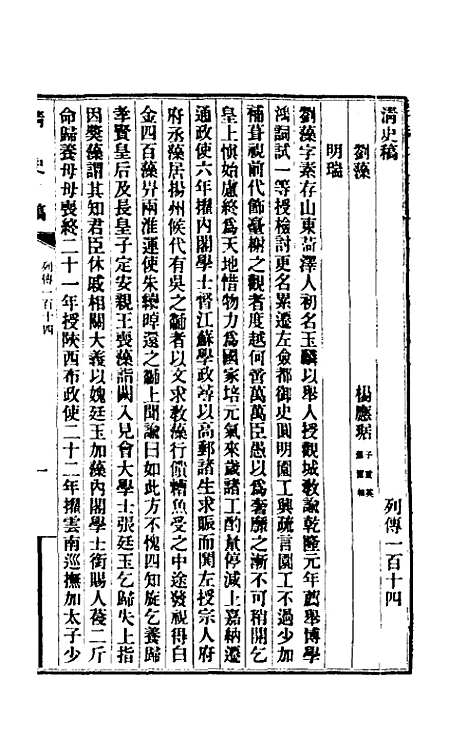 清史稿
列傳一百十四
劉藻
楊應琚 子重英 蘇爾相
明瑞
劉藻字素存山東菏澤人初名玉麟以舉人授觀城敎諭乾隆元年薦舉博學
鴻詞試一等授檢討更名累遷左僉都御史圓明園工興疏言園工不過少加
補葺視前代飾臺榭之觀者度越何啻萬萬臣愚以爲奢靡之漸不可稍開乞
皇上愼始慮終爲天地惜物力爲國家培元氣來歲諸工酌量停減上嘉納遷
通政使六年擢內閣學士督江蘇學政尋以高郵諸生求賑而鬨左授宗人府
府丞藻居揚州候代有吳之黼者以文求敎藻行饋糟魚受之中途發視得白
金四百藻畀兩淮運使朱續晫還之黼上聞諭曰如此方不愧四知旋乞養歸
孝賢皇后及長皇子定安親王喪藻詣闕入見會大學士張廷玉乞歸失上指
因獎藻謂其知君臣休戚相關大義以媿廷玉加藻內閣學士銜賜人葠二斤
命歸養母母喪終二十一年授陝西布政使二十二年擢雲南巡撫加太子少
清史稿
列傳一百十四
一